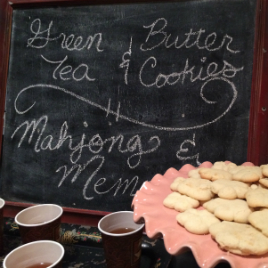 Green & Butter
Tea Cookies
Mahjong &
Mem